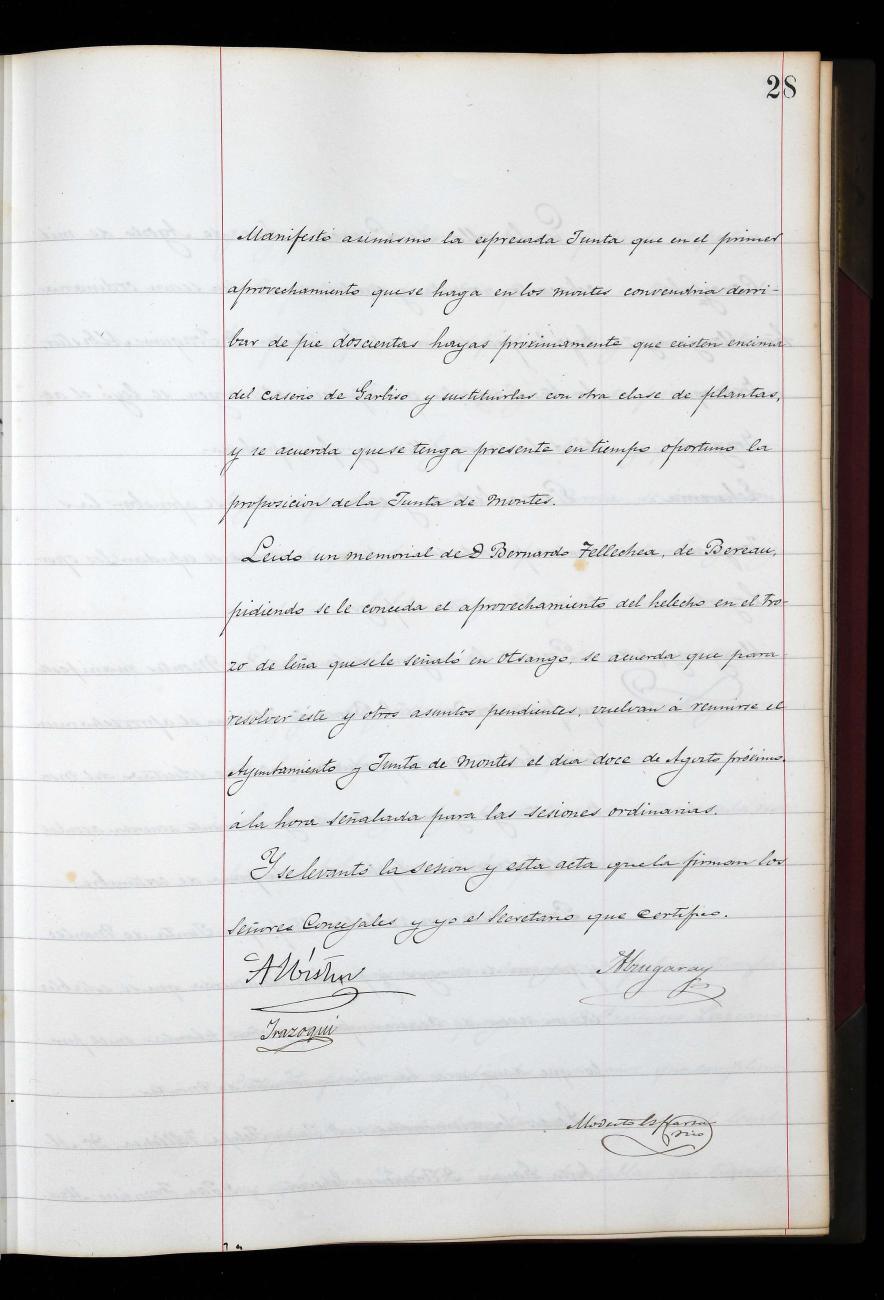 28
Manifestó asimismo la expresada Junta que en el primer
aprovechamiento que se haga en los montes convendria derri-
bar de pie doscientas hayas proximamente que existen encima
del caserio de Garbiso y sustituirlas con otra clase de plantas,
y se acuerda que se tenga presente en tiempo oportuno la
proposicion de la Junta de Montes.
Leido un memorial de D Bernardo Tellechea, de Bereau,
pidiendo se le conceda el aprovechamiento del helecho en el tro-
zo de leña que se le señaló en Otsango, se acuerda que para
resolver este y otros asuntos pendientes, vuelvan á reunirse el
Ayuntamiento y Junta de Montes el dia doce de Agosto próximo
á la hora señalada para las sesiones ordinarias.
Y se levantó la sesion y esta acta que la firman los
señores Concejales y yo el Secretario que certifico.
Albistur
Abregaray
Irazoqui
Modesto Esparza
Srio